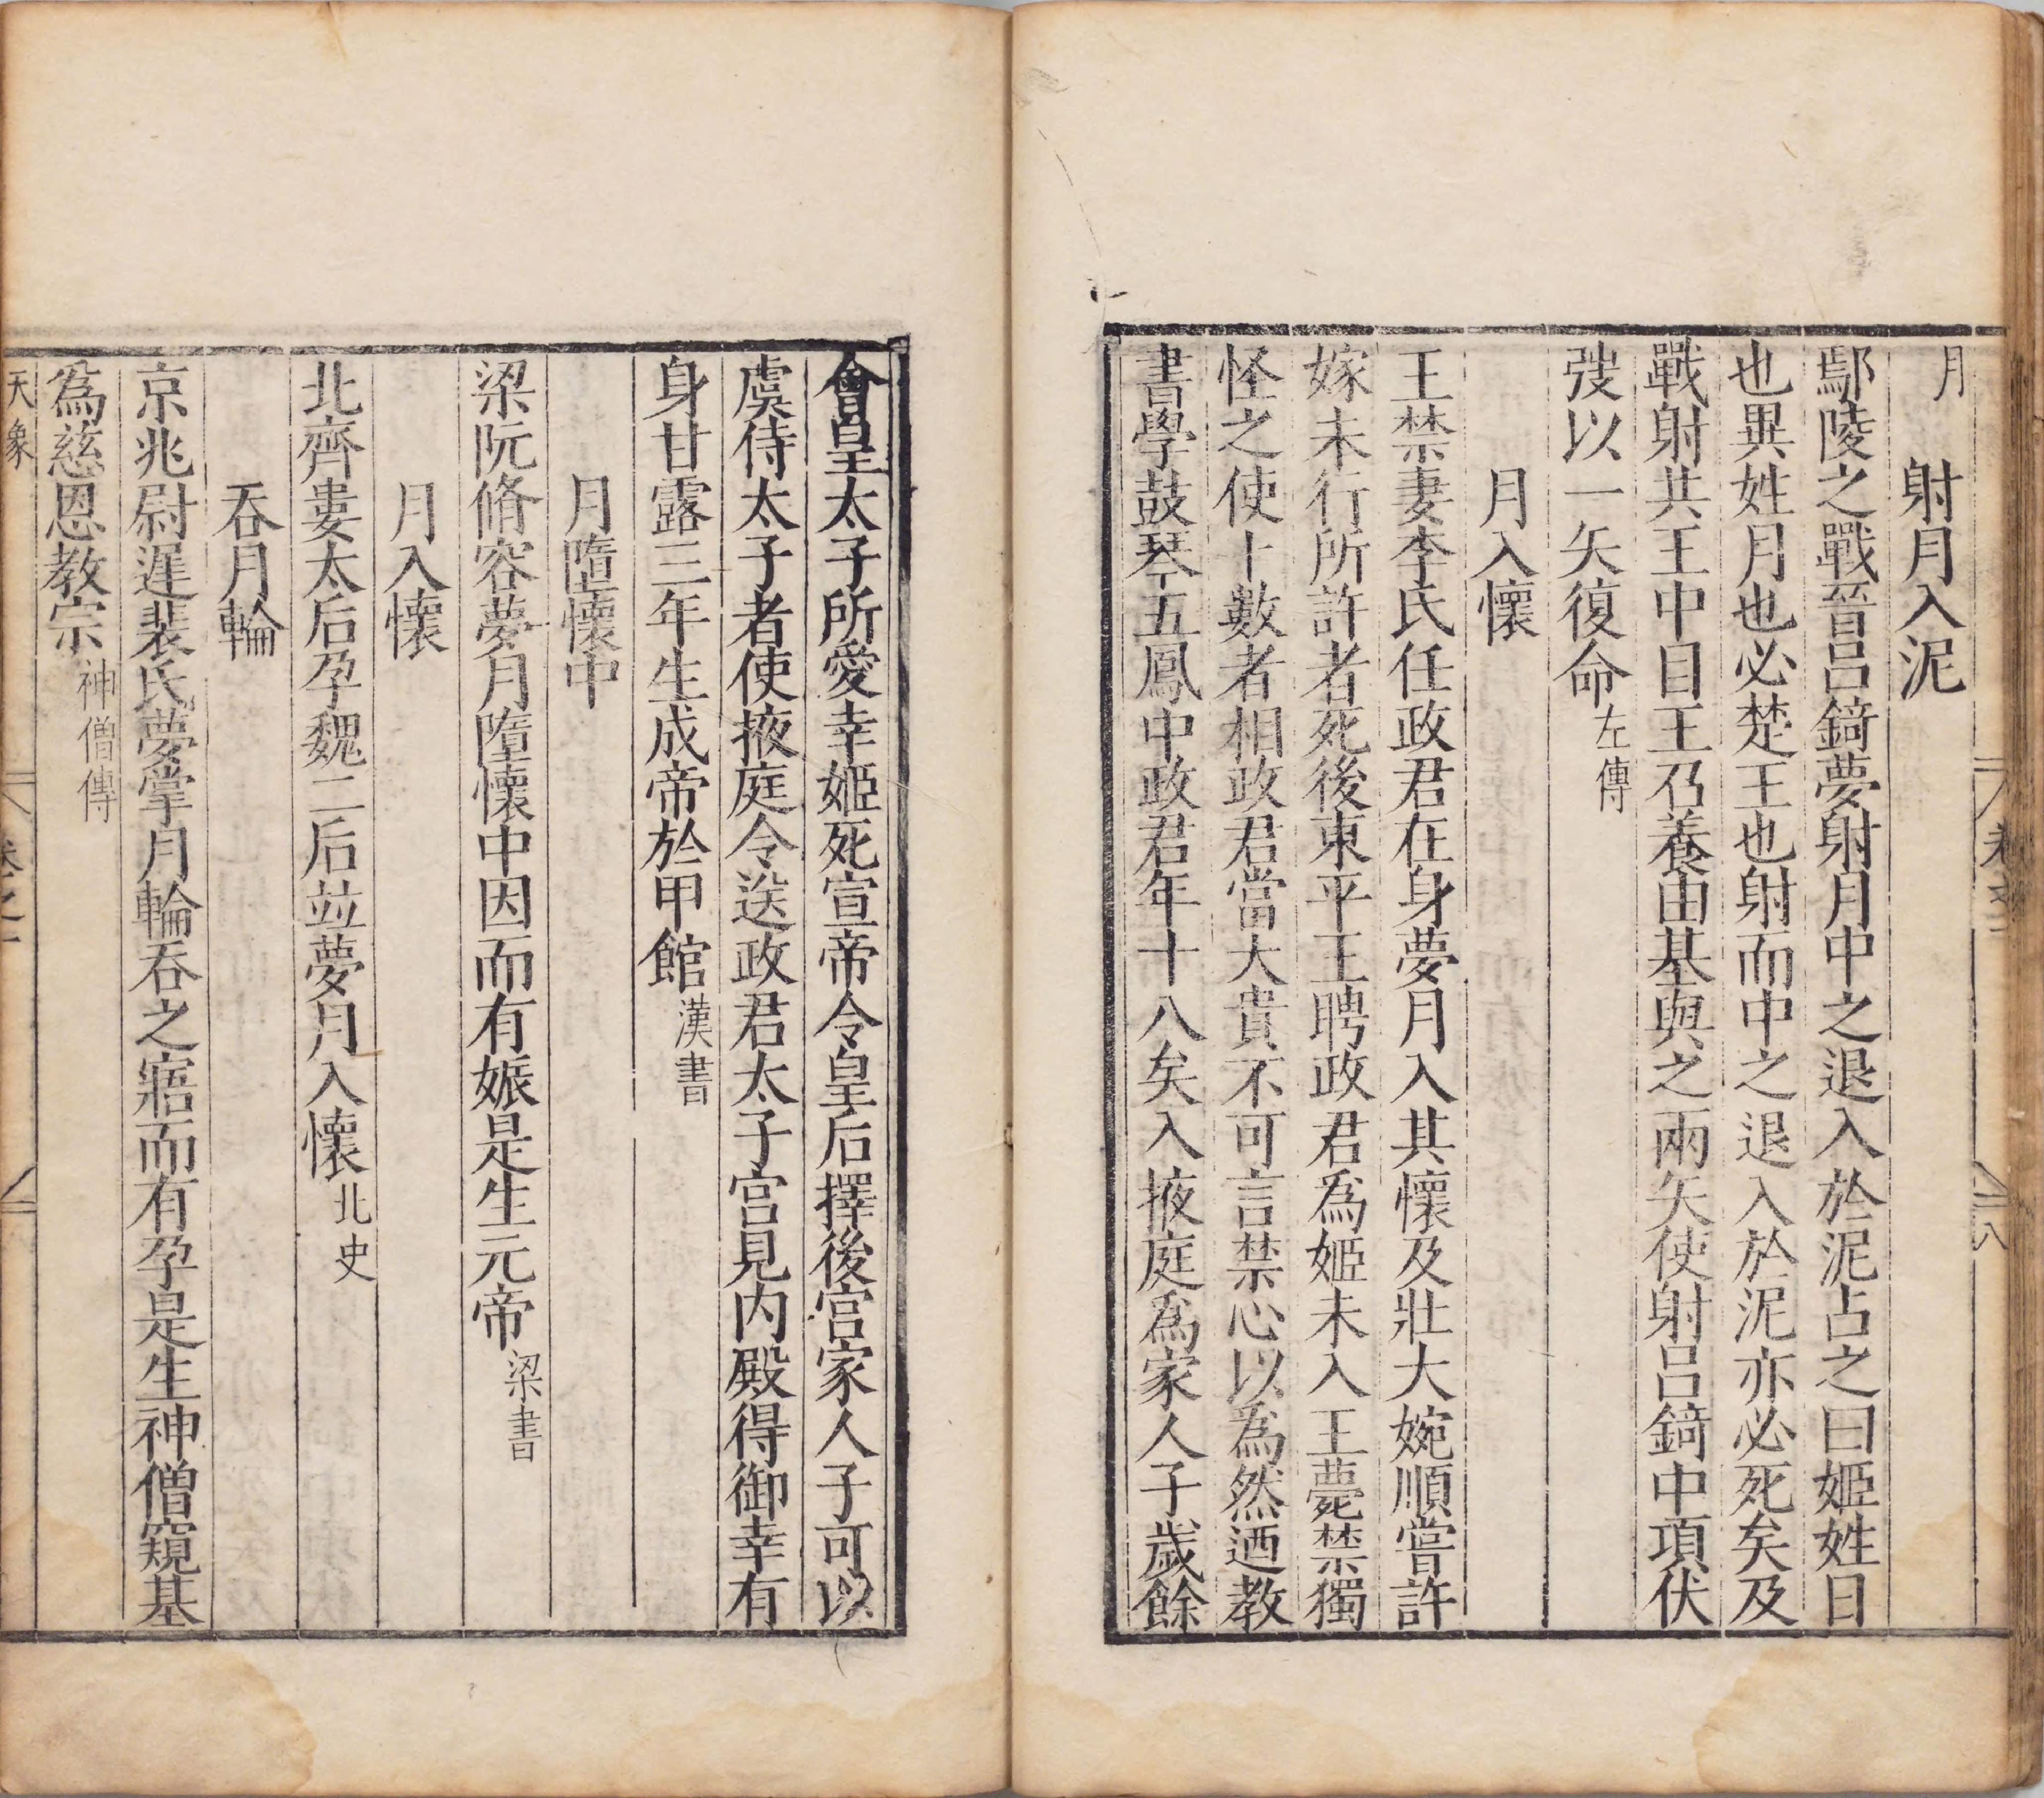 月
射月入泥
鄢陵之戰晉吕錡夢射月中之退入於泥占之曰姬姓日
也異姓月也必楚王也射而中之退入於泥亦必死矣及
戰射共王中目王乃養由基與之兩矢使射吕錡中項伏
弢以一矢復命左傳
月入懷
王禁妻李氏任政君在身夢月入其懷及壯大婉順嘗許
嫁未行所許者死後東平王聘政君爲姬未入王薨禁獨
怪之使卜數者相政君當大貴不可言禁心以爲然迺教
書學鼓琴五鳳中政君年十八矣入掖庭爲家人子歲餘
會皇太子所愛幸姬死宣帝令皇后擇後宫家人子可以
虞侍太子者使掖庭令送政君太子宫見内殿得御幸有
身甘露三年生成帝於甲館漢書
月墮懷中
梁阮脩容夢月墮懷中因而有娠是生元帝梁書
月入懷
北齊婁太后孕魏二后並夢月入懷北史
吞月輪
京兆尉遲裴氏夢掌月輪吞之寤而有孕是生神僧窺基
爲慈恩教宗神僧傳
天象
卷之
八